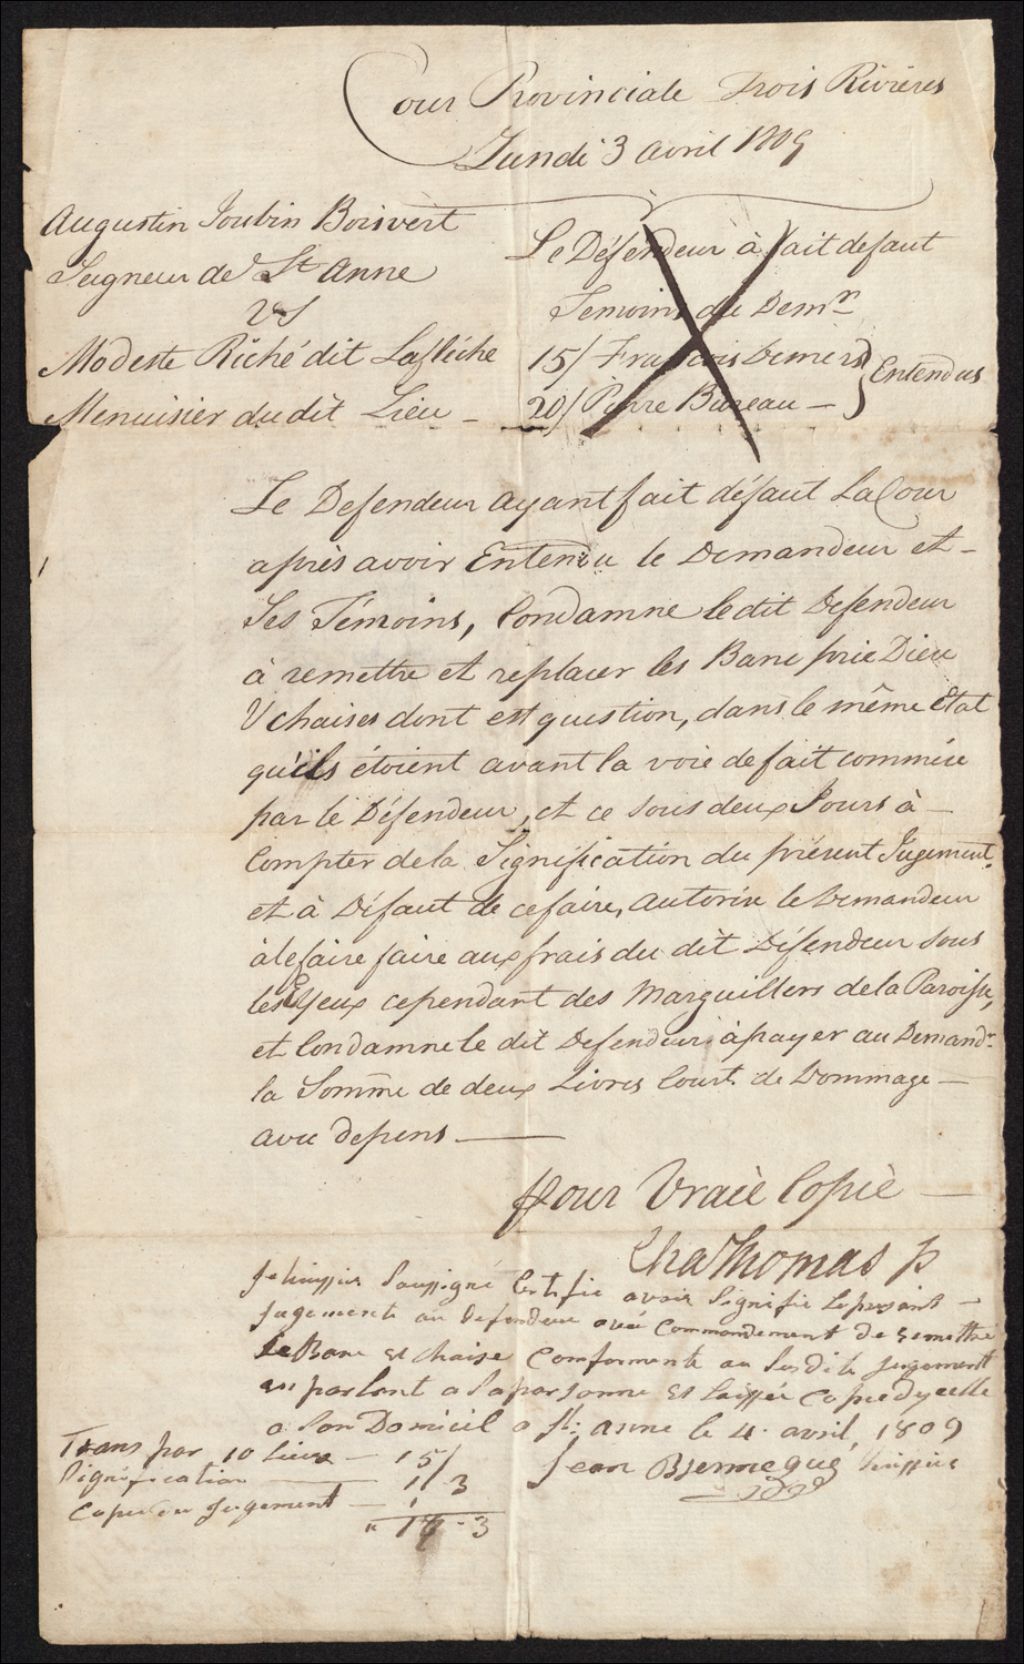 Cour Provinciale Trois Rivieres
Lundi 3 avril 1809
Augustin Joubin Boisvert
Seigneur de St Anne
VS
Modeste Riché dit Lafléche
Menuisier du dit Lieu —
Le Défendeur à fait defaut
Temoins du Demr
15/ François Demers
20/ Pierre Bureau —
} Entendus
Le Defendeur ayant fait défaut La Cour
après avoir Entendu le Demandeur et –
Ses Témoins, Condamne le dit Defendeur
à remettre et replacer les Banc prie Dieu
& chaises dont est question, dans le même Etat
qu'ils étoient avant la voie de fait commise
par le Défendeur, et ce sous deux Jours à —
Compter de la Signification du présent Jugement.
et à Défaut de ce faire, autorise le Demandeur
à le faire faire aux frais du dit Défendeur sous
les Yeux cependant des Marguillers de la Paroisse,
et Condamne le dit Defendeur à payer au Demandr
la Somme de deux Livres Court. de Dommage —
avec depens. —
Pour Vraiè Copiè —
Cha Thomas
Je huissier Soussigné Certifie avoir Signifié le present —
Jugement au Defendeur avec Commandement de remettre
Le Banc et chaise Conformente au Susdite Jugement
en parlant a sa personne et laissée Copie dycelle
a Son Domicil a St: anne le 4. avril, 1809
Jean huissier
Trans par 10 Lieux — 15/
Signification — 1/3
Copie du Jugement — 1
" 17 - 3